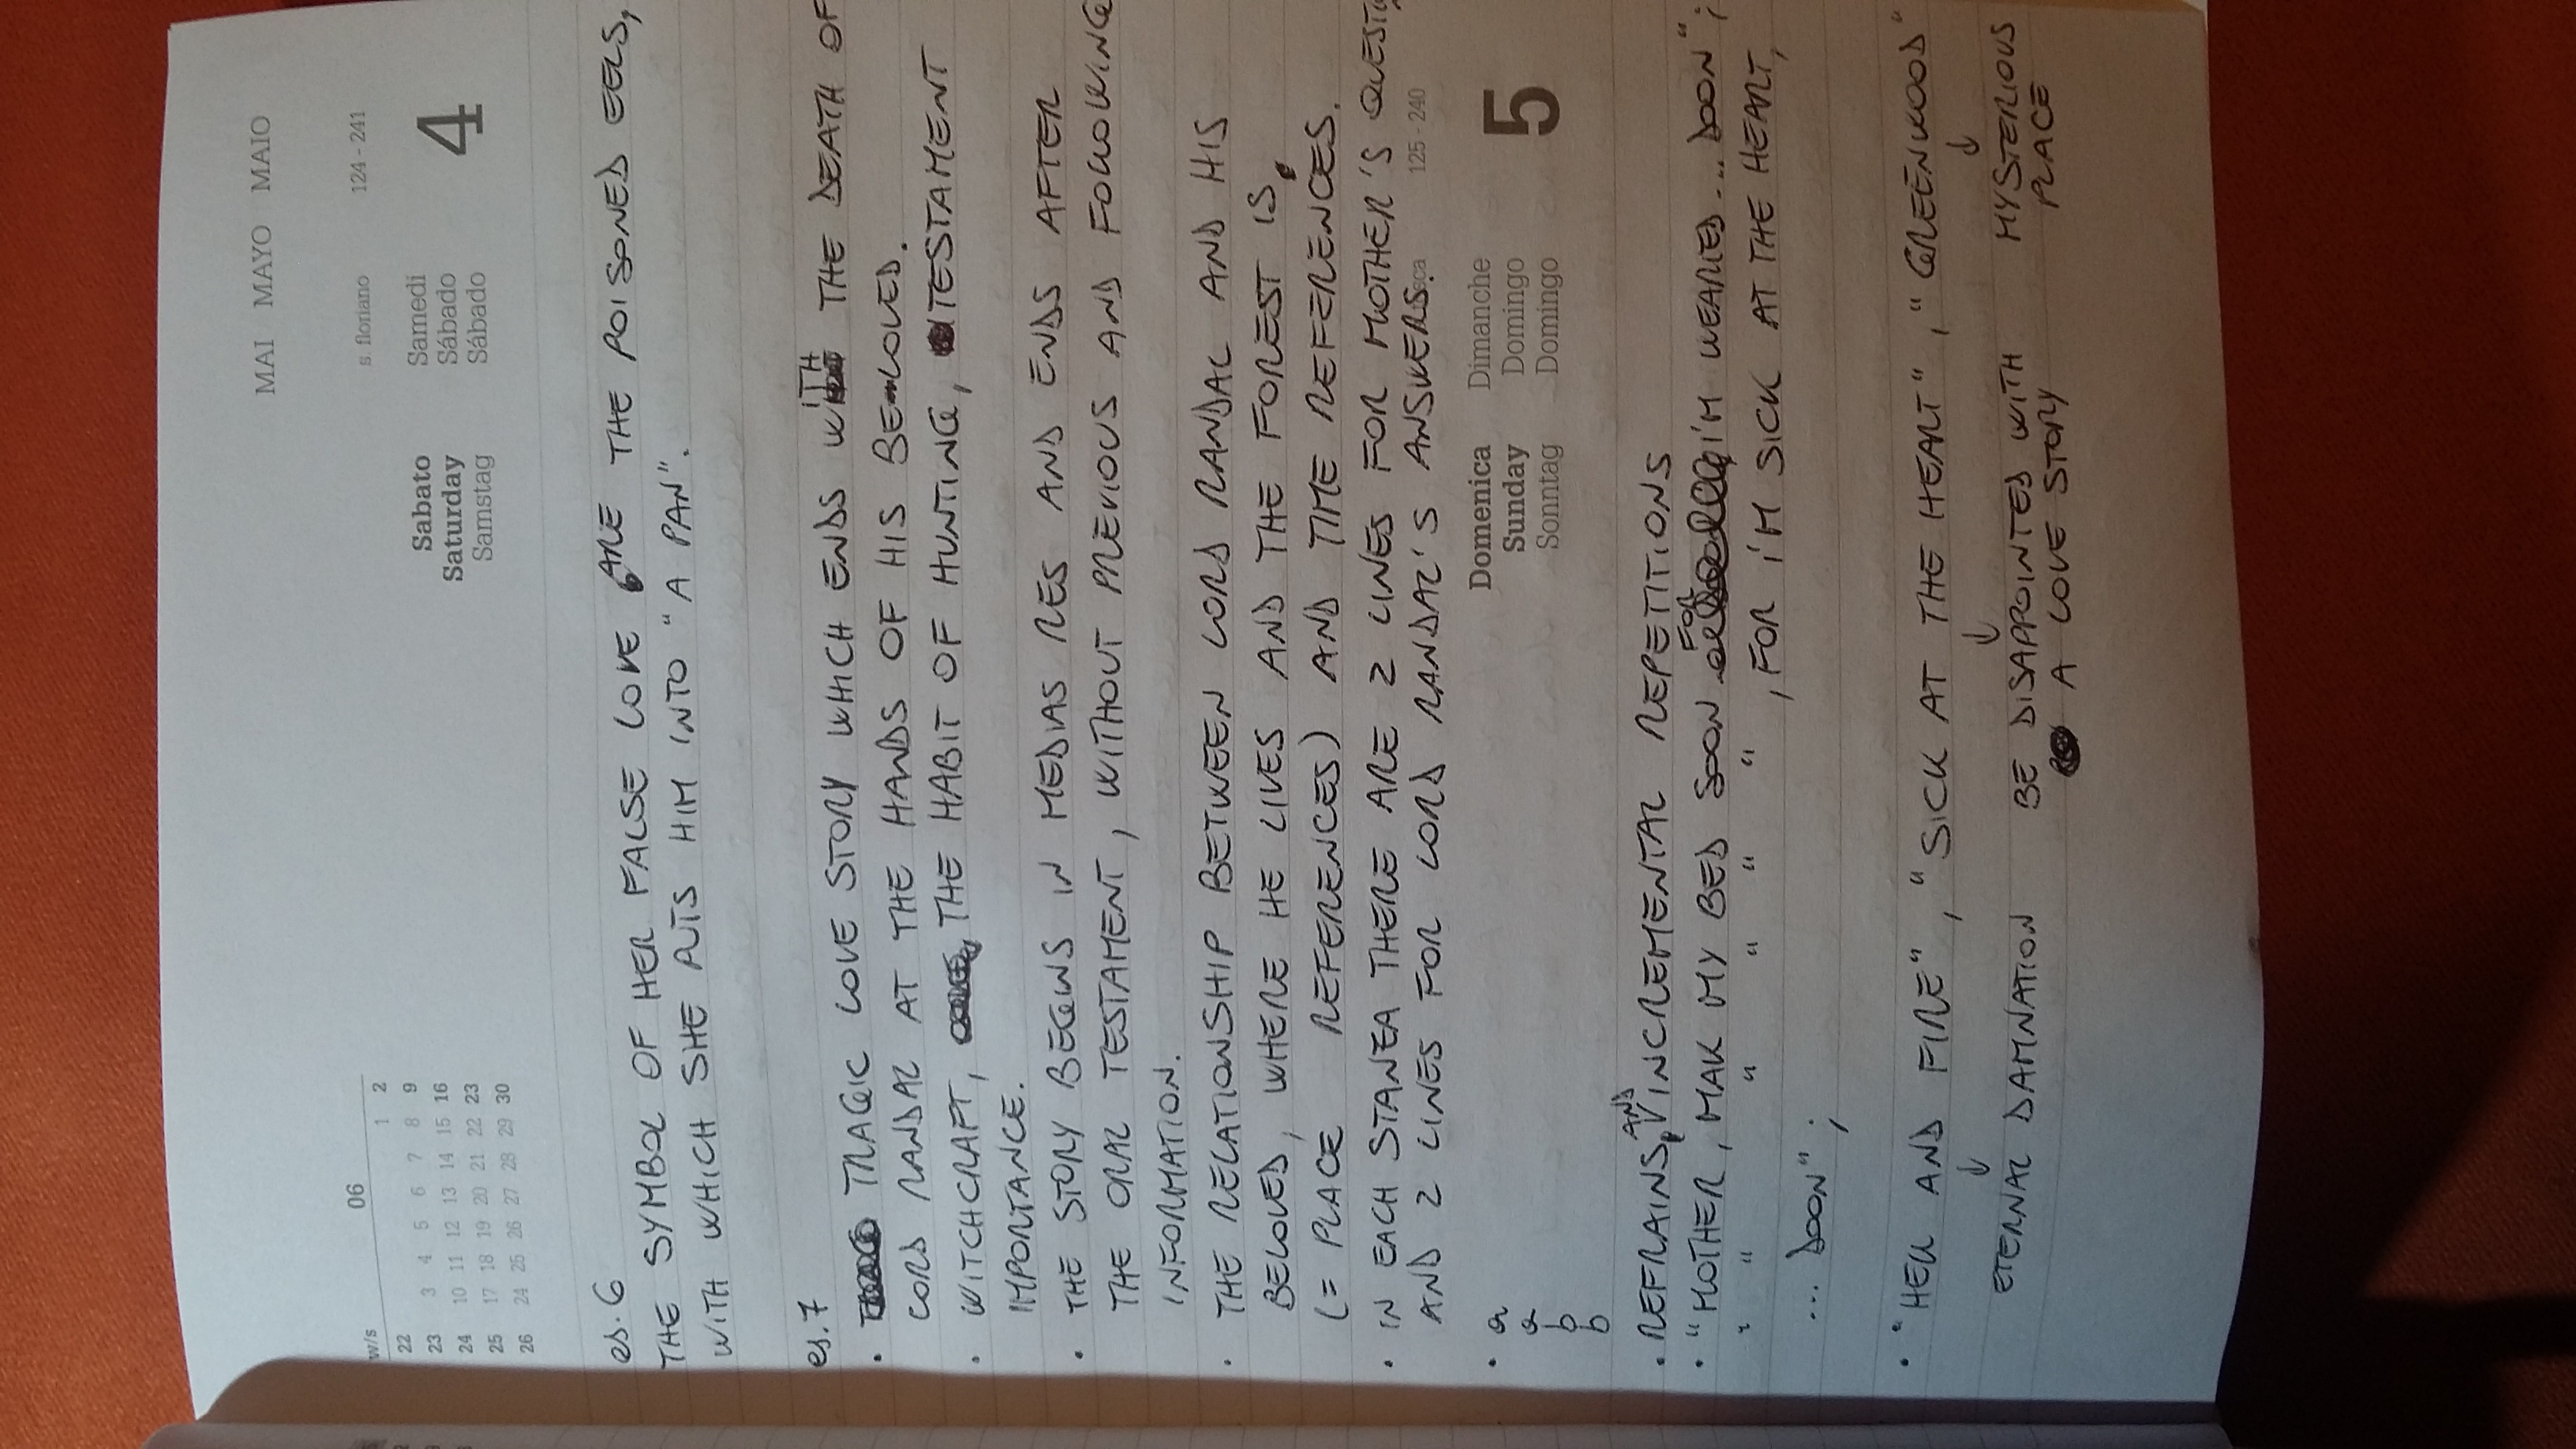 MAI MAYO MAIO
06
w/s 1 2
22 3 4 5 6 7 8 9
23 10 11 12 13 14 15 16
24 17 18 19 20 21 22 23
25 24 25 26 27 28 29 30
26
s. floriano 124 - 241
Sabato Samedi
Saturday Sábado
Samstag Sábado
4
es. 6
THE SYMBOL OF HER FALSE LOVE ARE THE POISONED EELS,
WITH WHICH SHE PUTS HIM INTO "A PAN".
es. 7
• TRAGIC LOVE STORY WHICH ENDS WITH THE DEATH OF
LORD RANDAL AT THE HANDS OF HIS BELOVED.
• WITCHCRAFT, THE HABIT OF HUNTING, TESTAMENT
IMPORTANCE.
• THE STORY BEGINS IN MEDIAS RES AND ENDS AFTER
THE ORAL TESTAMENT, WITHOUT PREVIOUS AND FOLLOWING
INFORMATION.
• THE RELATIONSHIP BETWEEN LORD RANDAL AND HIS
BELOVED, WHERE HE LIVES AND THE FOREST IS
(= PLACE REFERENCES) AND TIME REFERENCES.
• IN EACH STANZA THERE ARE 2 LINES FOR MOTHER'S
AND 2 LINES FOR LORD RANDAL'S ANSWERS.
125 - 240
Domenica Dimanche
Sunday Domingo
Sonntag Domingo
5
• a
a
b
b
• REFRAINS AND INCREMENTAL REPETITIONS
• "MOTHER, MAK MY BED SOON FOR I'M WEARIED ... DOON";
" " " " " " , FOR I'M SICK AT THE HEART,
... DOON";
• "HELL AND FIRE", "SICK AT THE HEART", "GREENWOOD"
↓ ↓ ↓
ETERNAL DAMNATION BE DISAPPOINTED WITH MYSTERIOUS
A LOVE STORY PLACE